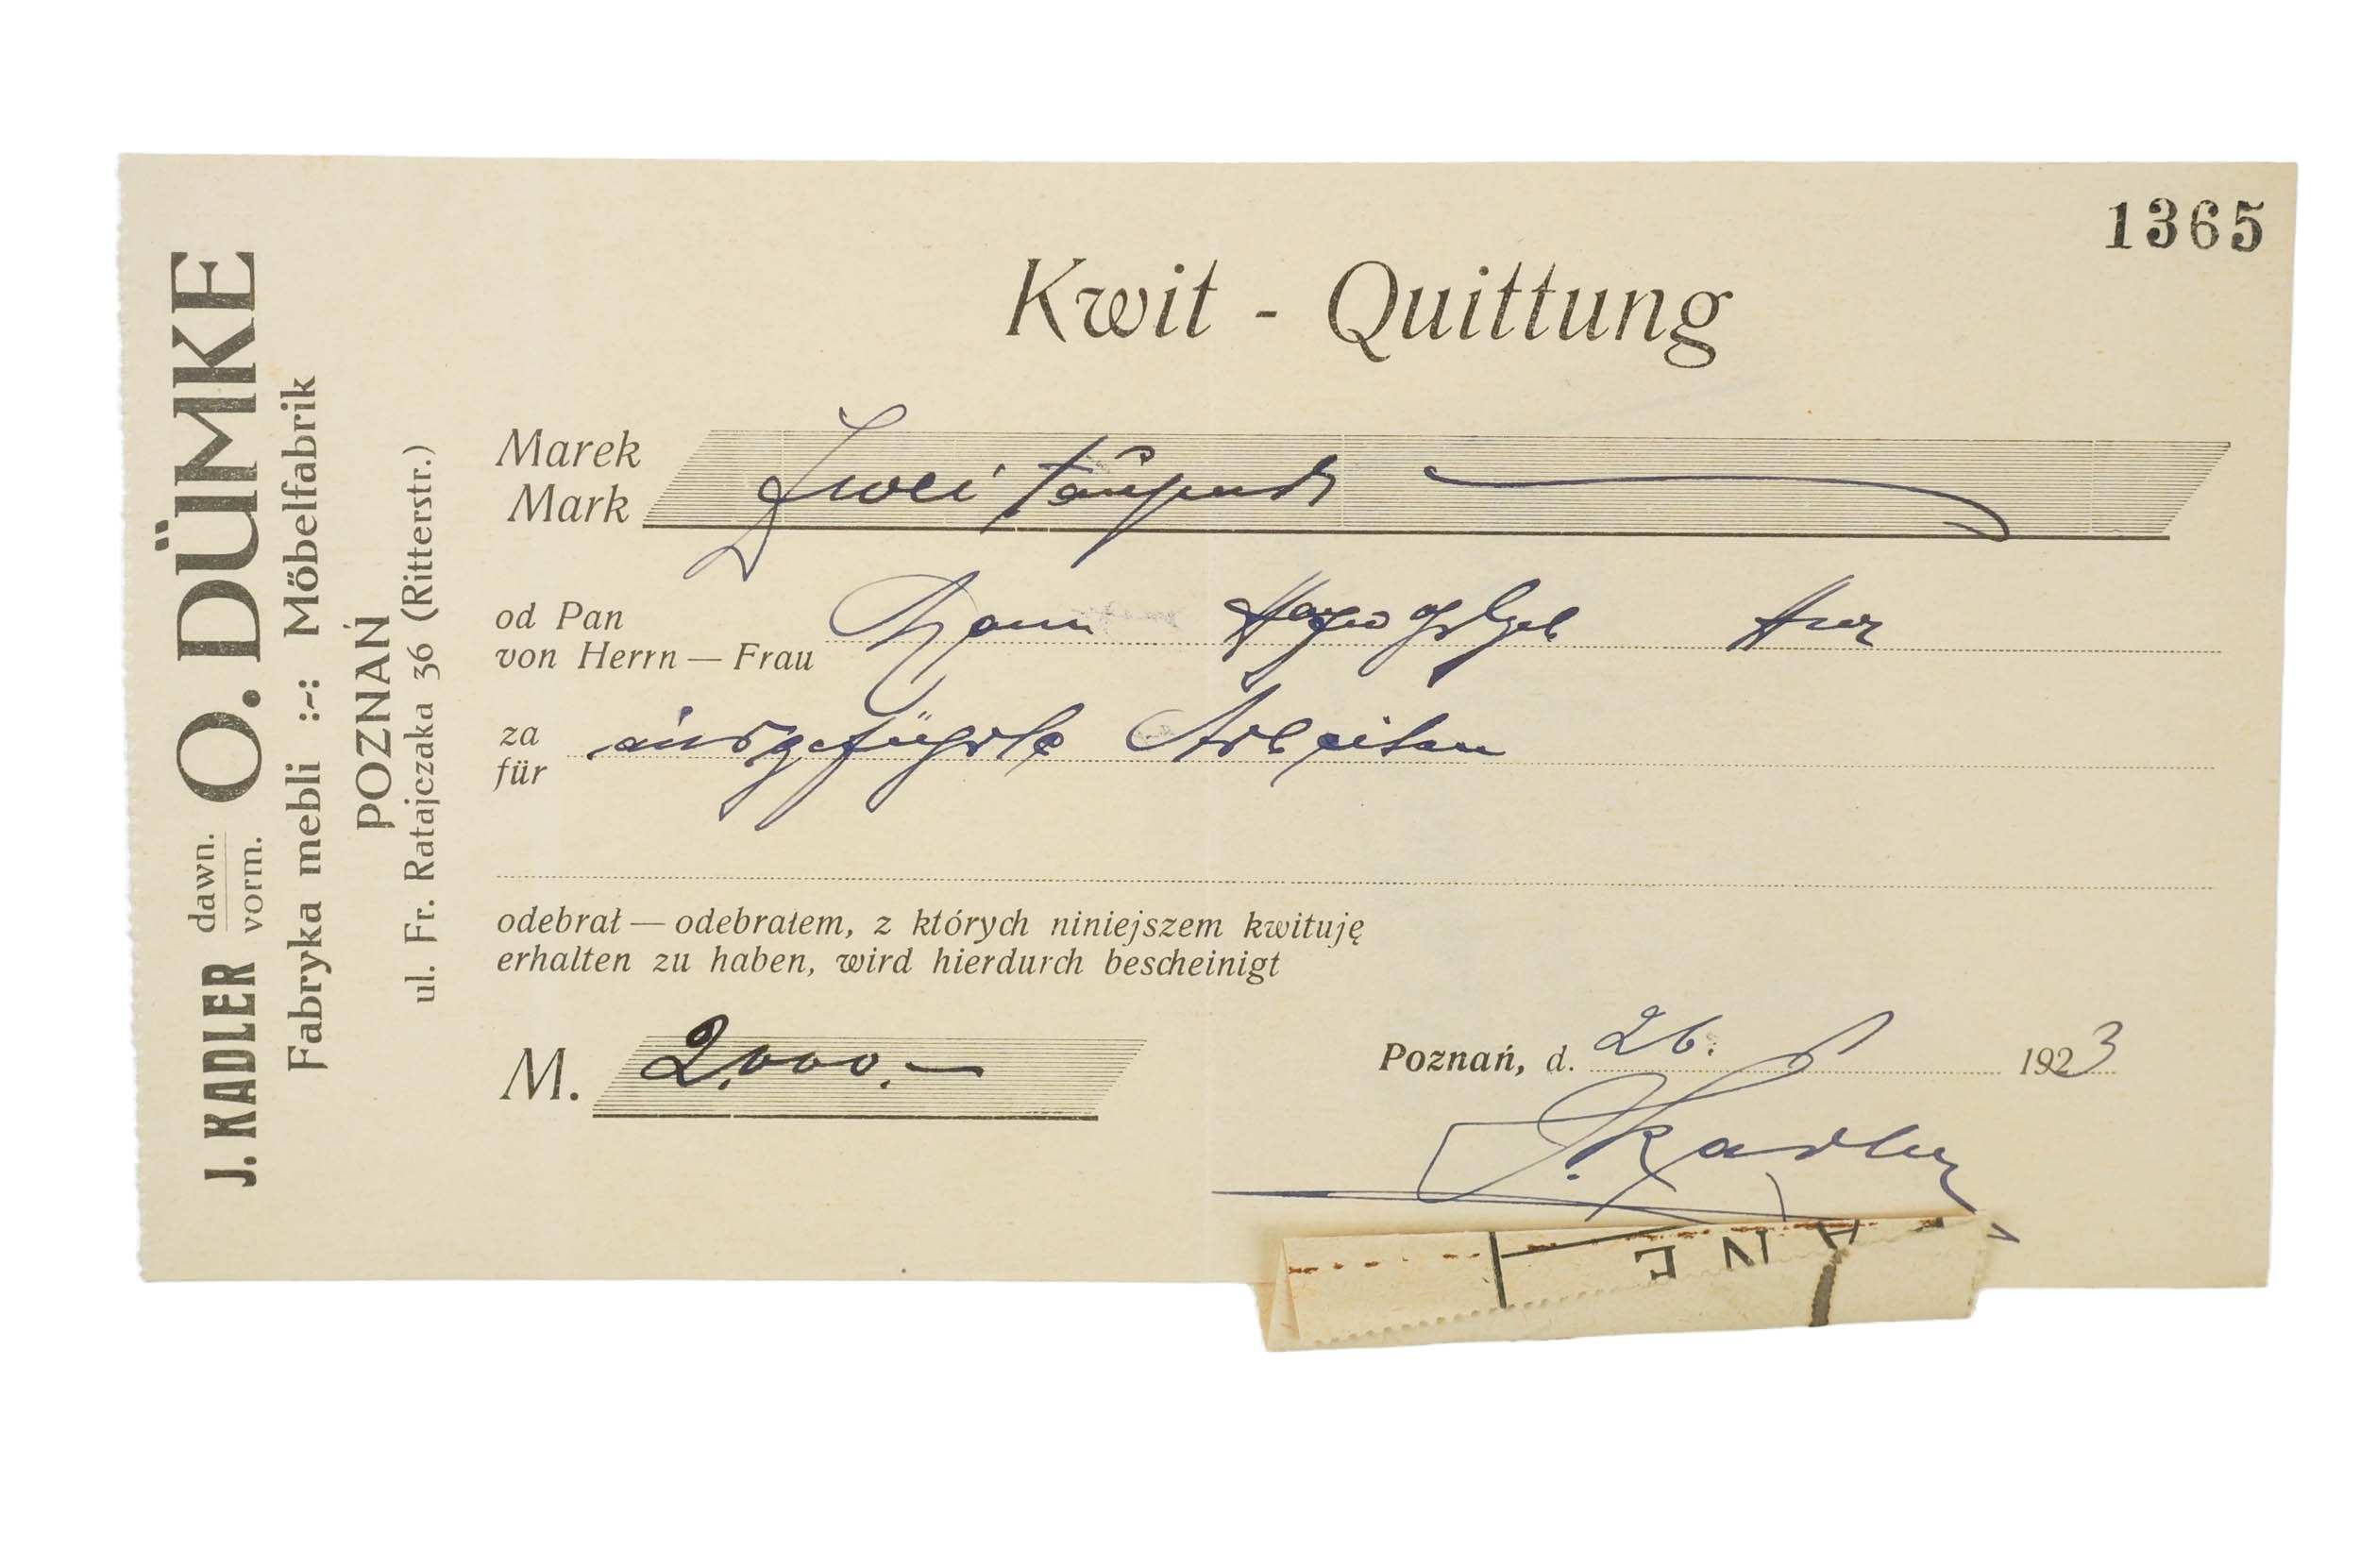 J. KADLER dawn. vorm. O. DÜMKE
Fabryka mebli :-: Möbelfabrik
POZNAŃ
ul. Fr. Ratajczaka 36 (Ritterstr.)
1365
Kwit - Quittung
Marek
Mark
Zwei tausend
od Pan
von Herrn — Frau
za
für
ausgeführte Arbeiten
odebrał — odebrałem, z których niniejszem kwituję
erhalten zu haben, wird hierdurch bescheinigt
M. 2.000.—
Poznań, d. 26. 1923
J. Kadler